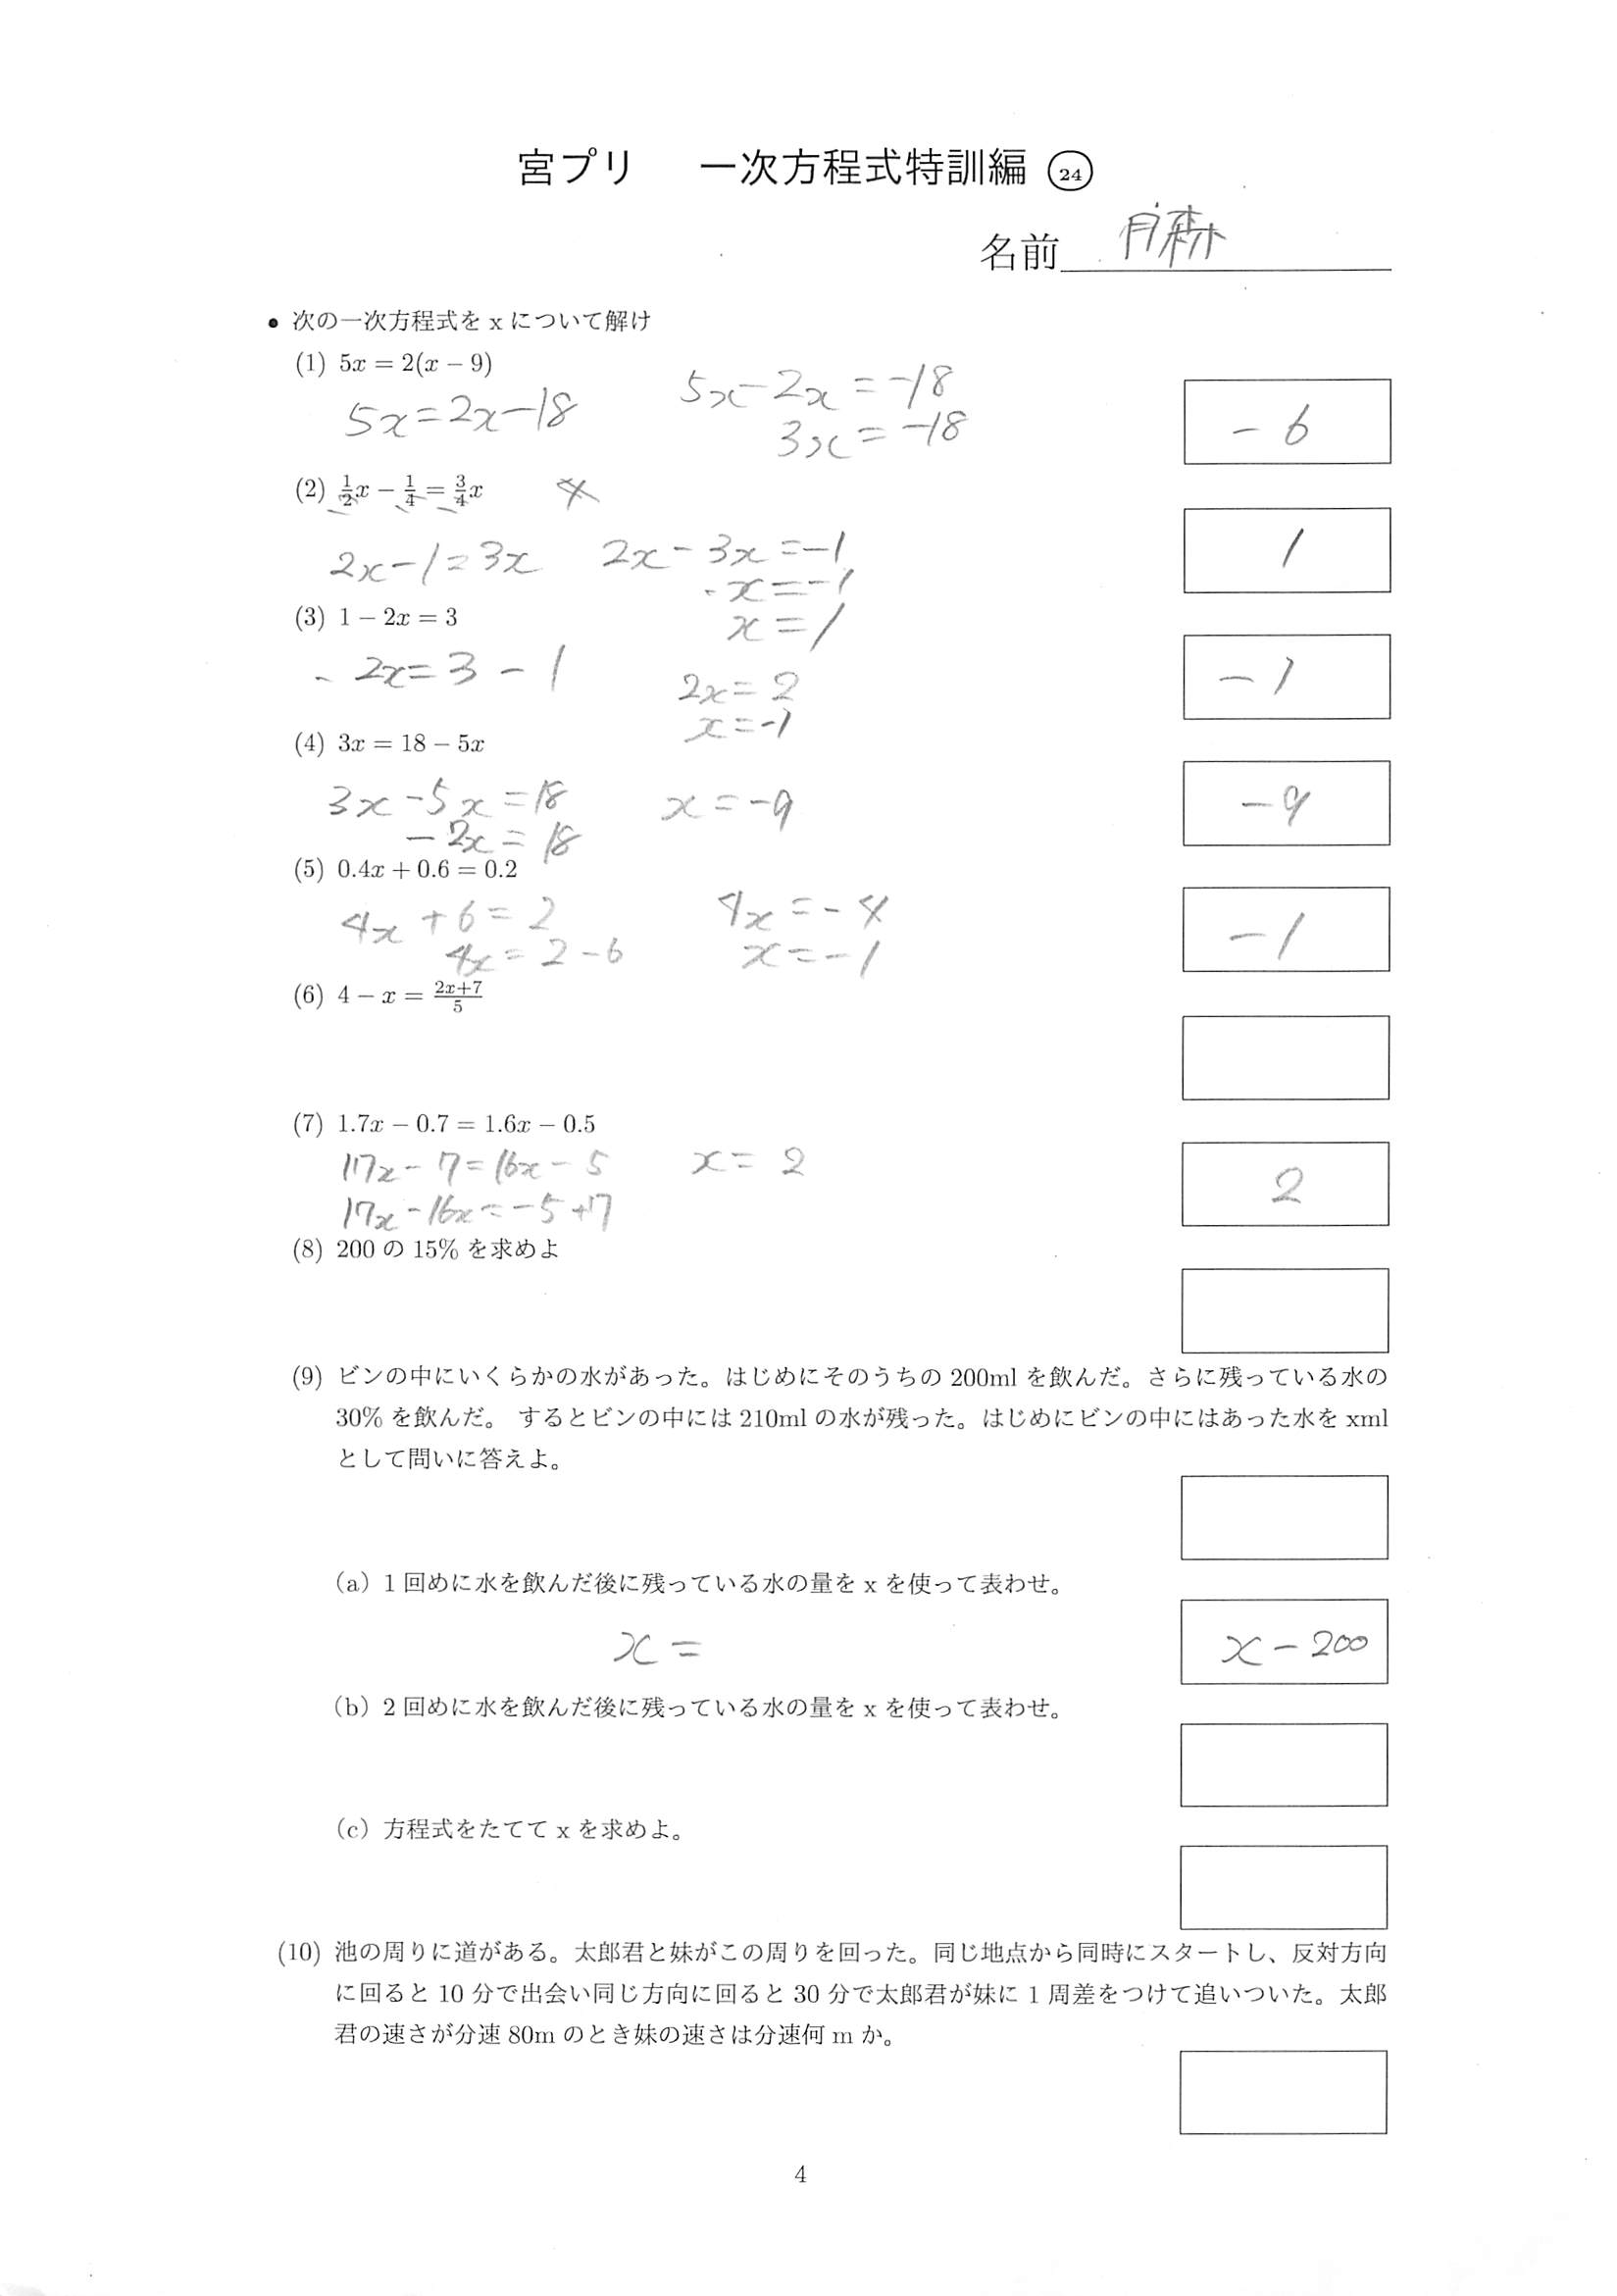 宮プリ 一次方程式特訓編 24
名前
• 次の一次方程式を x について解け
(1) 5x = 2(x − 9)
5x=2x−18 5x−2x=−18
3x=−18
−6
(2) 1/2x − 1/4 = 3/4x
2x−1=3x 2x−3x=−1
-x=−1
x=1
1
(3) 1 − 2x = 3
- 2x=3−1 2x=2
x=-1
−1
(4) 3x = 18 − 5x
3x−5x=18 x=−9
−2x=18
−9
(5) 0.4x + 0.6 = 0.2
4x+6=2 4x=−4
4x=2−6 x=−1
−1
(6) 4 − x = (2x+7)/5
(7) 1.7x − 0.7 = 1.6x − 0.5
17x−7=16x−5 x=2
17x−16x=−5+7
2
(8) 200 の 15% を求めよ
(9) ビンの中にいくらかの水があった。はじめにそのうちの 200ml を飲んだ。さらに残っている水の
30% を飲んだ。 するとビンの中には 210ml の水が残った。はじめにビンの中にはあった水を xml
として問いに答えよ。
(a) 1 回めに水を飲んだ後に残っている水の量を x を使って表わせ。
x= x−200
(b) 2 回めに水を飲んだ後に残っている水の量を x を使って表わせ。
(c) 方程式をたてて x を求めよ。
(10) 池の周りに道がある。太郎君と妹がこの周りを回った。同じ地点から同時にスタートし、反対方向
に回ると 10 分で出会い同じ方向に回ると 30 分で太郎君が妹に 1 周差をつけて追いついた。太郎
君の速さが分速 80m のとき妹の速さは分速何 m か。
4